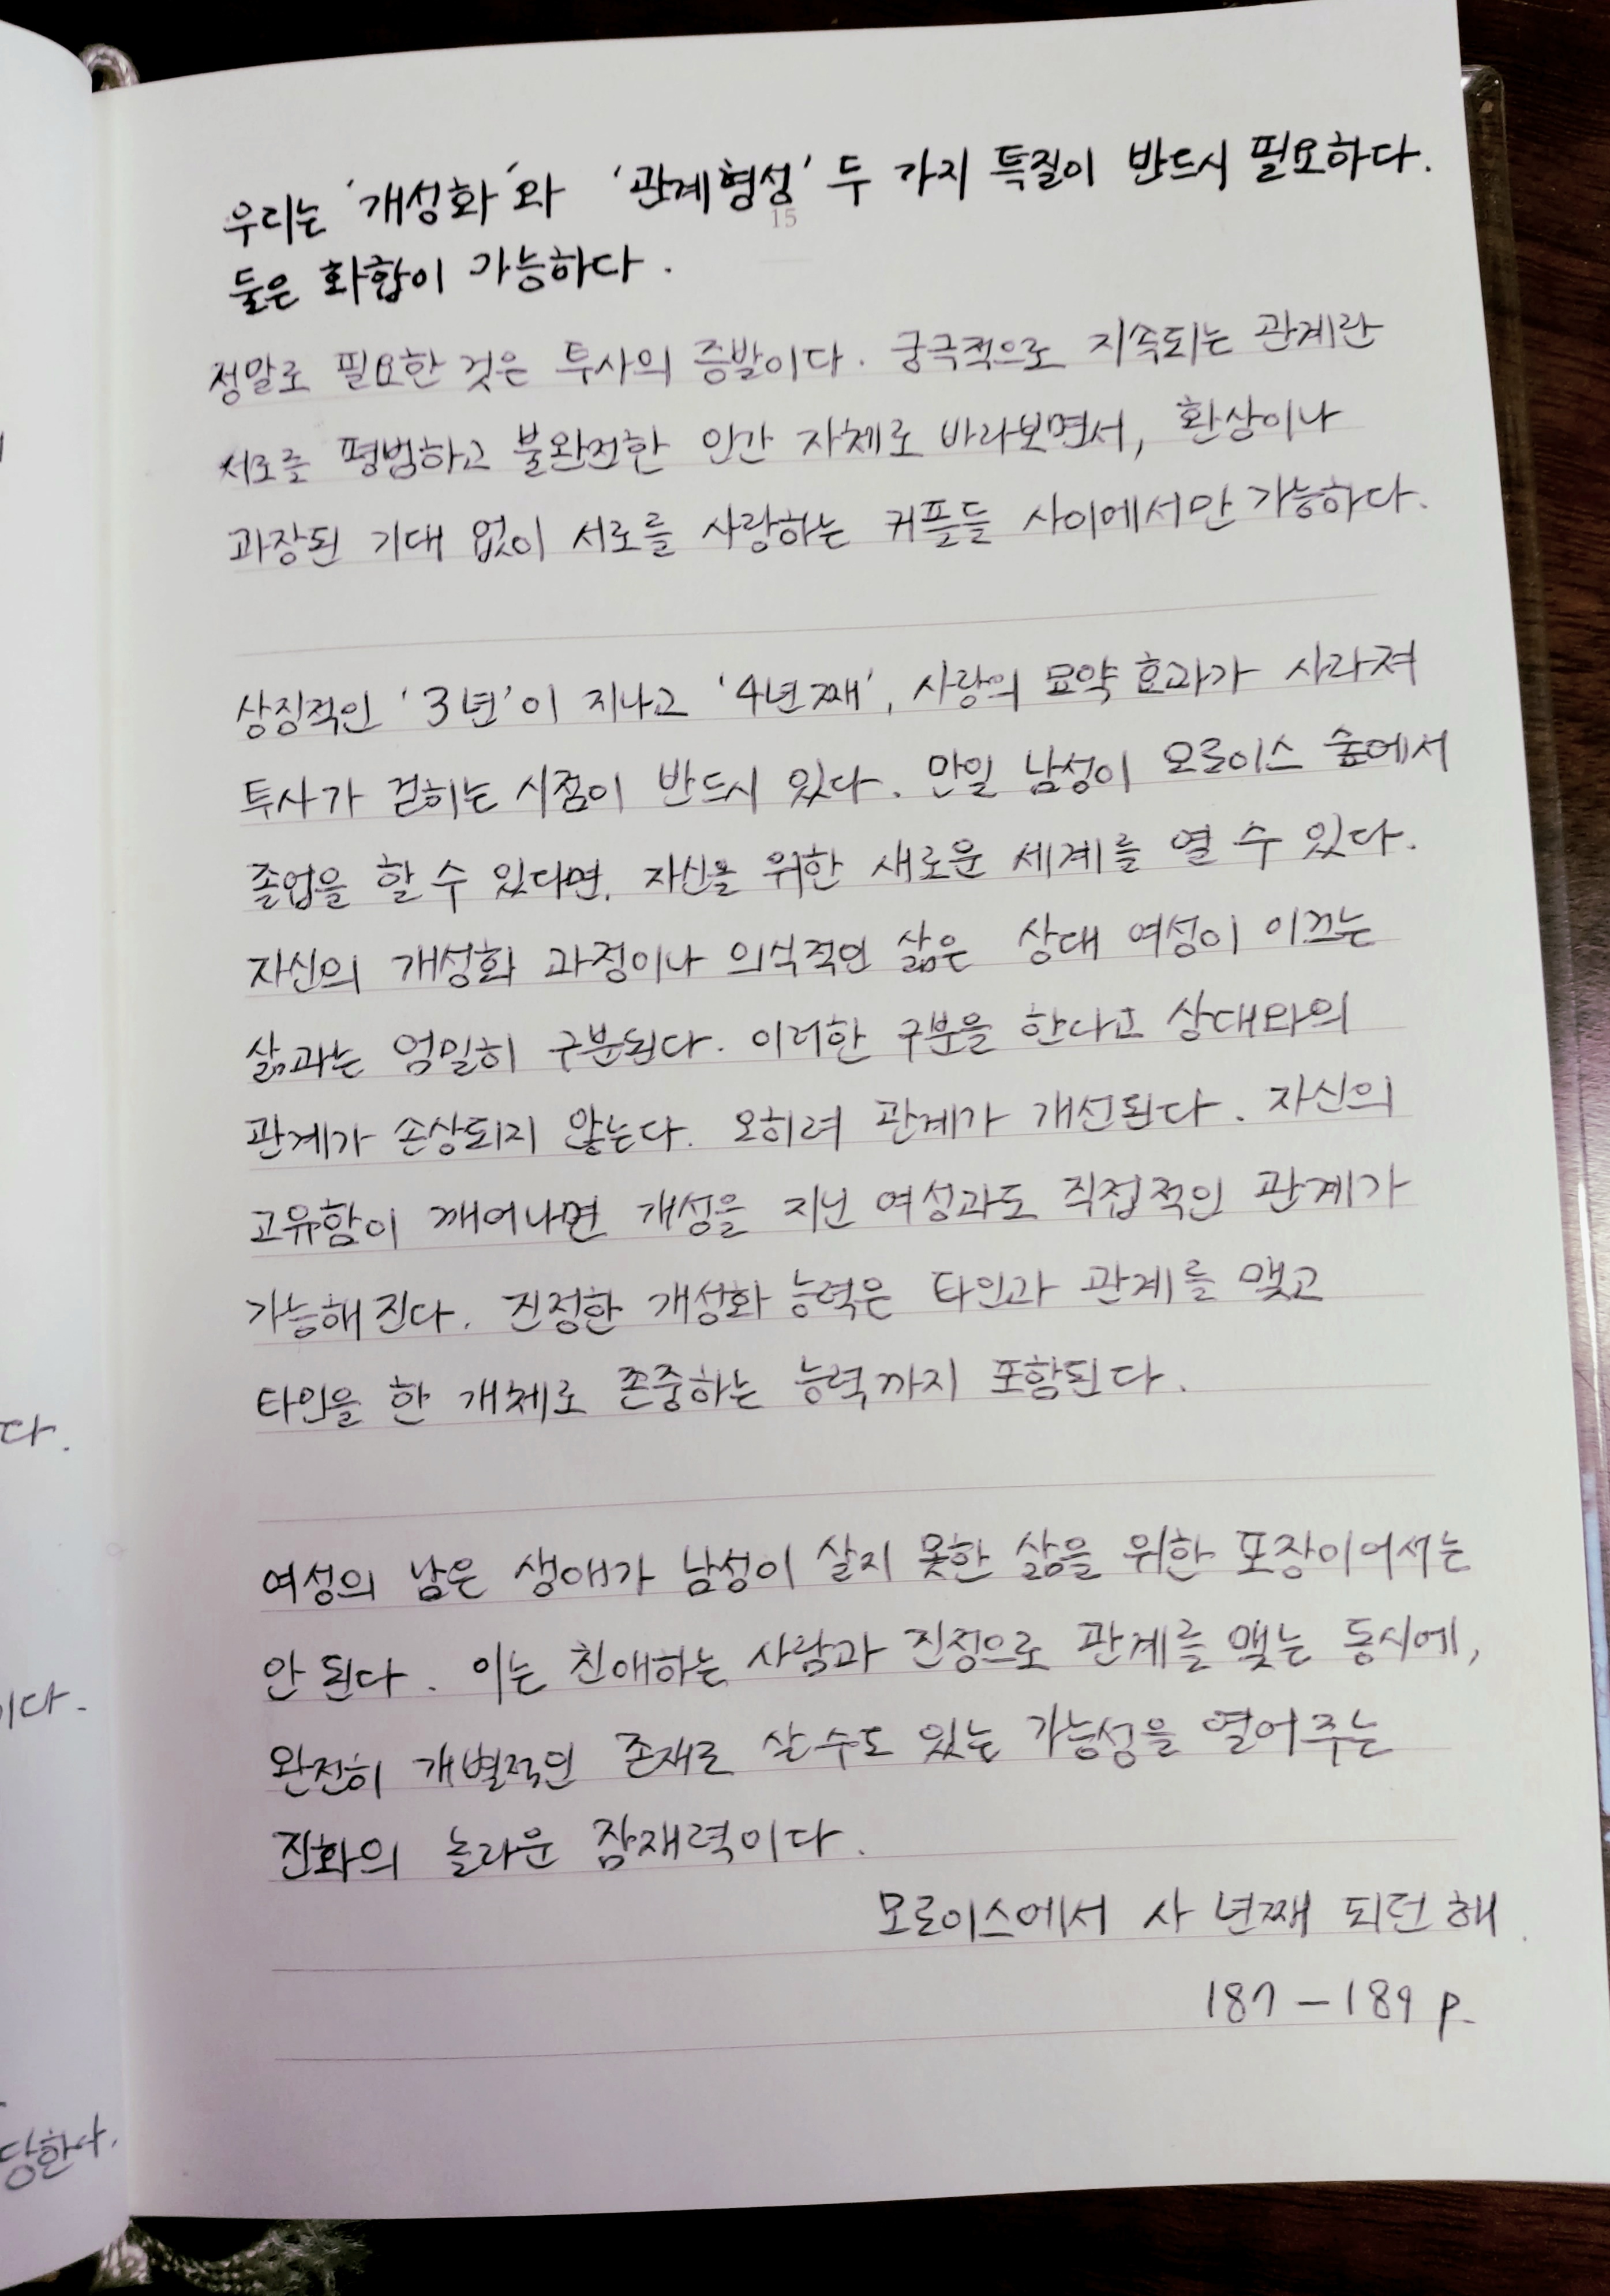 우리는 '개성화'와 '관계형성' 두 가지 특질이 반드시 필요하다.
15
둘은 화합이 가능하다.
정말로 필요한 것은 투사의 증발이다. 궁극적으로 지속되는 관계란
서로를 평범하고 불완전한 인간 자체로 바라보면서, 환상이나
과장된 기대 없이 서로를 사랑하는 커플들 사이에서만 가능하다.
상징적인 '3년'이 지나고 '4년째', 사랑의 묘약 효과가 사라져
투사가 걷히는 시점이 반드시 있다. 만일 남성이 모로이스 숲에서
졸업을 할 수 있다면, 자신을 위한 새로운 세계를 열 수 있다.
자신의 개성화 과정이나 의식적인 삶은 상대 여성이 이끄는
삶과는 엄밀히 구분된다. 이러한 구분을 한다고 상대와의
관계가 손상되지 않는다. 오히려 관계가 개선된다. 자신의
고유함이 깨어나면 개성을 지닌 여성과도 직접적인 관계가
가능해진다. 진정한 개성화 능력은 타인과 관계를 맺고
타인을 한 개체로 존중하는 능력까지 포함된다.
여성의 남은 생애가 남성이 살지 못한 삶을 위한 포장이어서는
안 된다. 이는 친애하는 사람과 진정으로 관계를 맺는 동시에,
완전히 개별적인 존재로 살 수도 있는 가능성을 열어주는
진화의 놀라운 잠재력이다.
모로이스에서 사 년째 되던 해.
187 - 189 p.
다.
이다.
당한다.